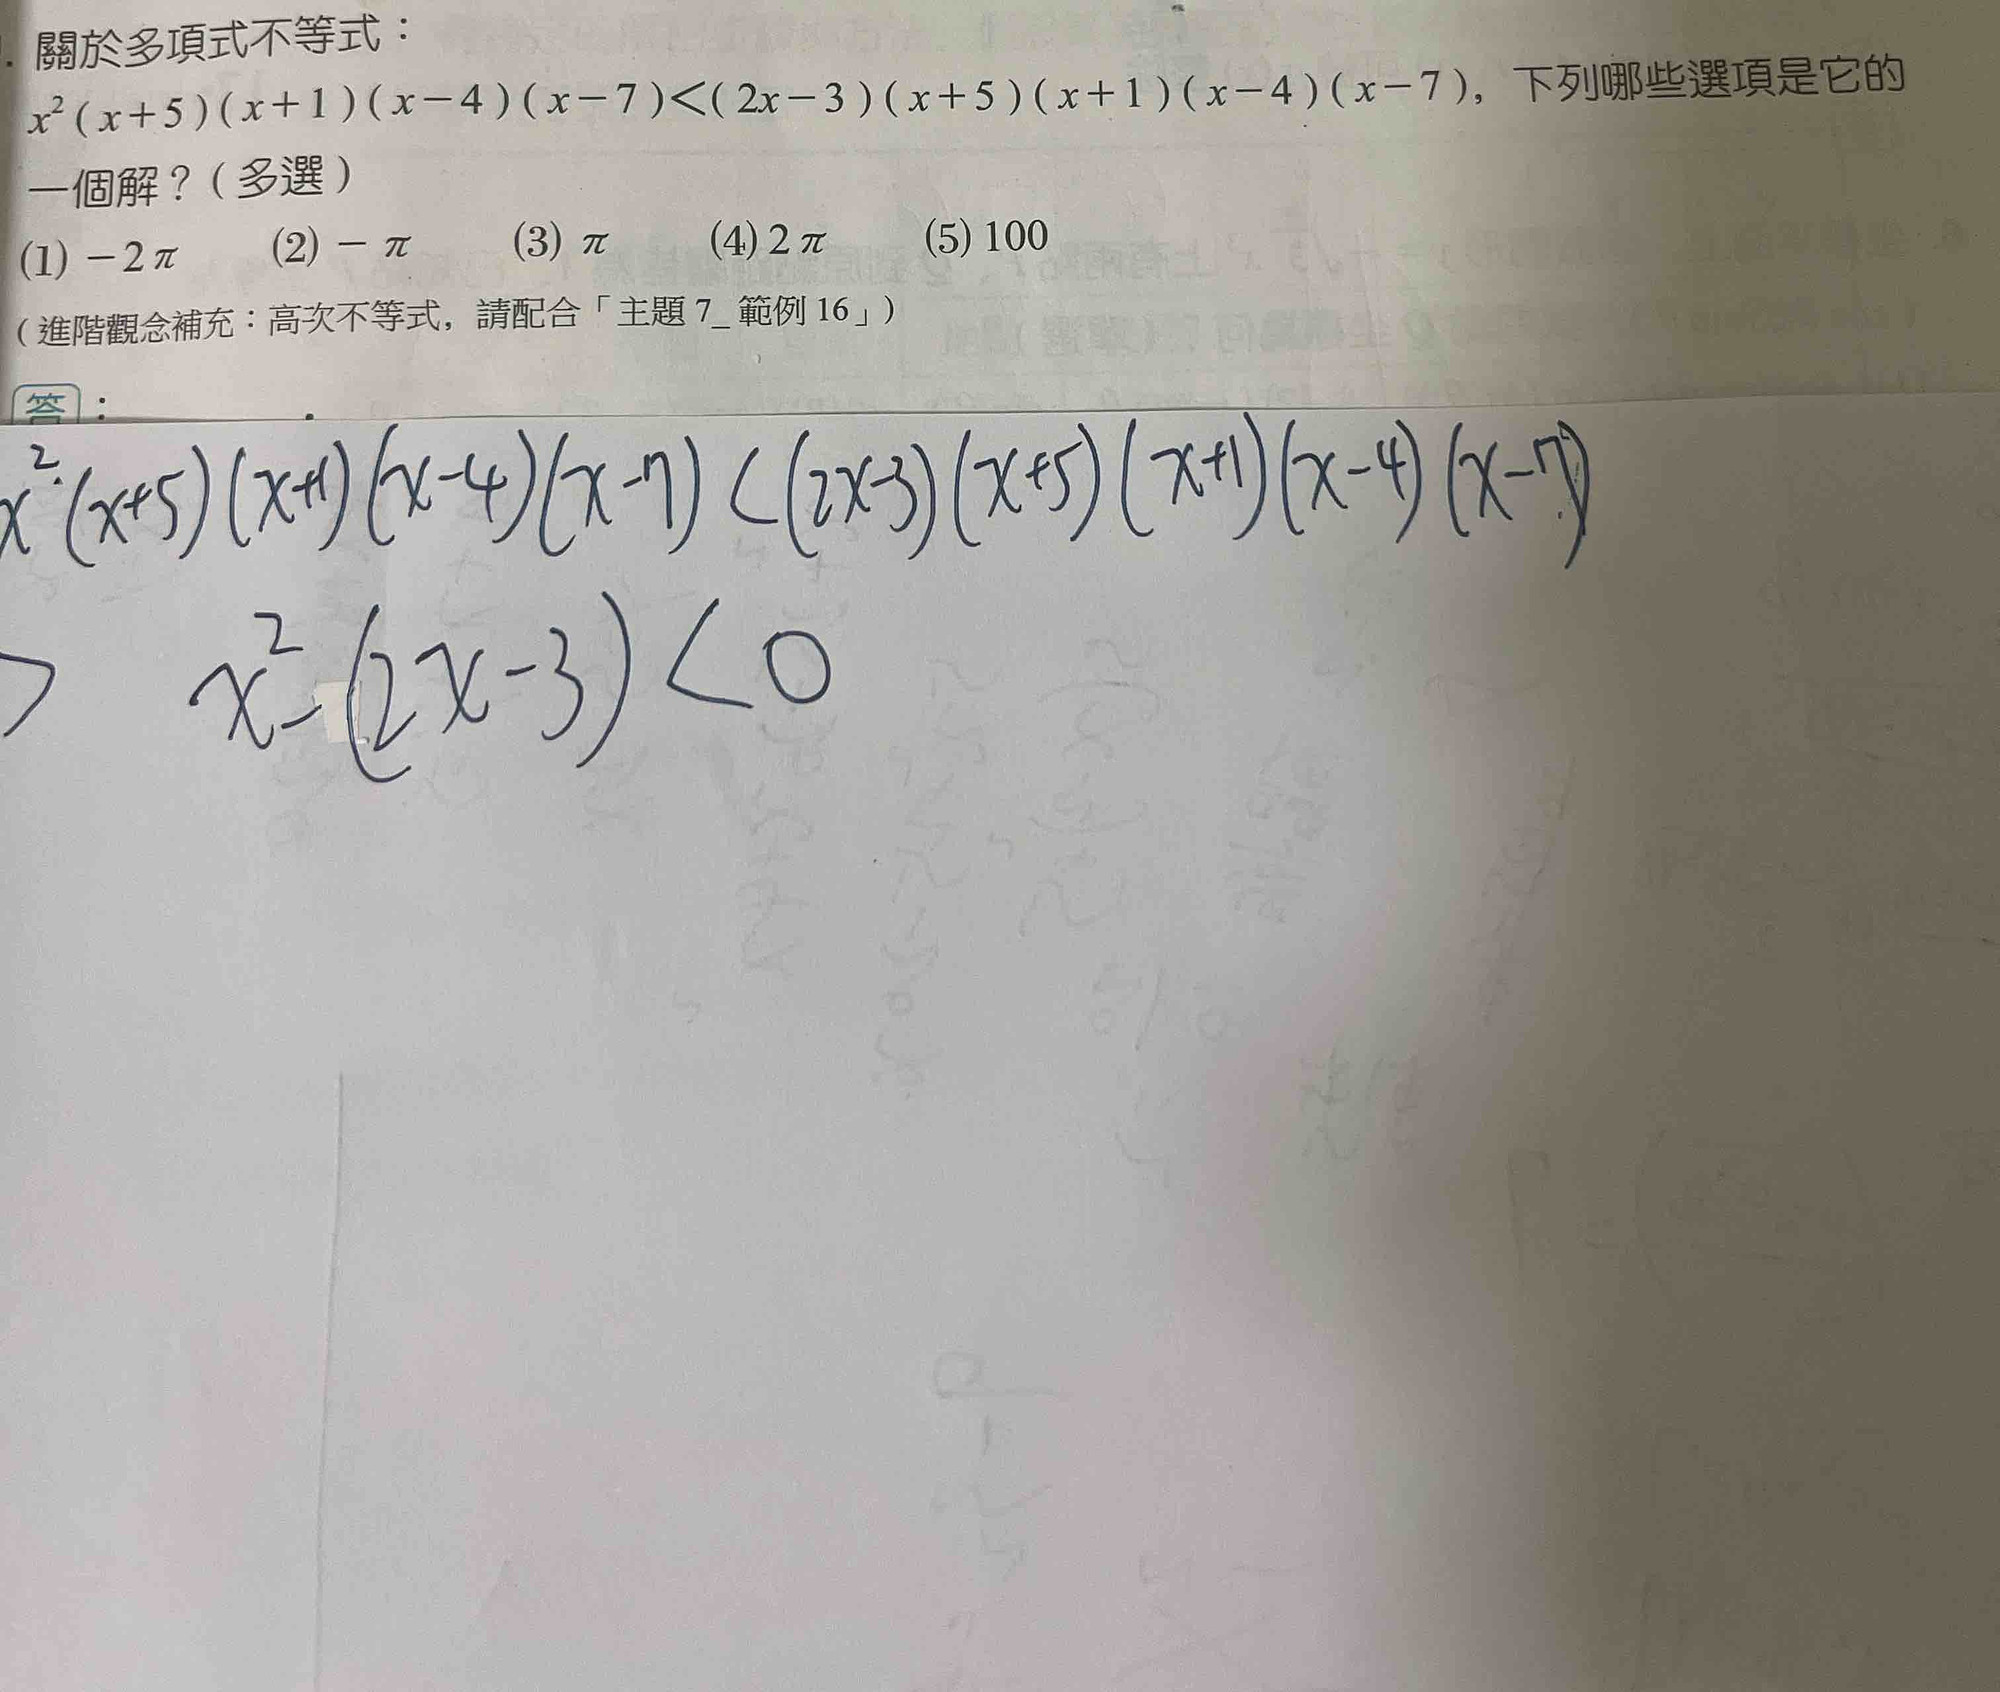 . 關於多項式不等式：
x²(x+5)(x+1)(x-4)(x-7)<(2x-3)(x+5)(x+1)(x-4)(x-7)，下列哪些選項是它的
一個解？(多選)
(1) -2π (2) -π (3) π (4) 2π (5) 100
(進階觀念補充：高次不等式，請配合「主題 7_ 範例 16」)
答：
x²(x+5)(x+1)(x-4)(x-7)<(2x-3)(x+5)(x+1)(x-4)(x-7)
> x²-(2x-3)<0